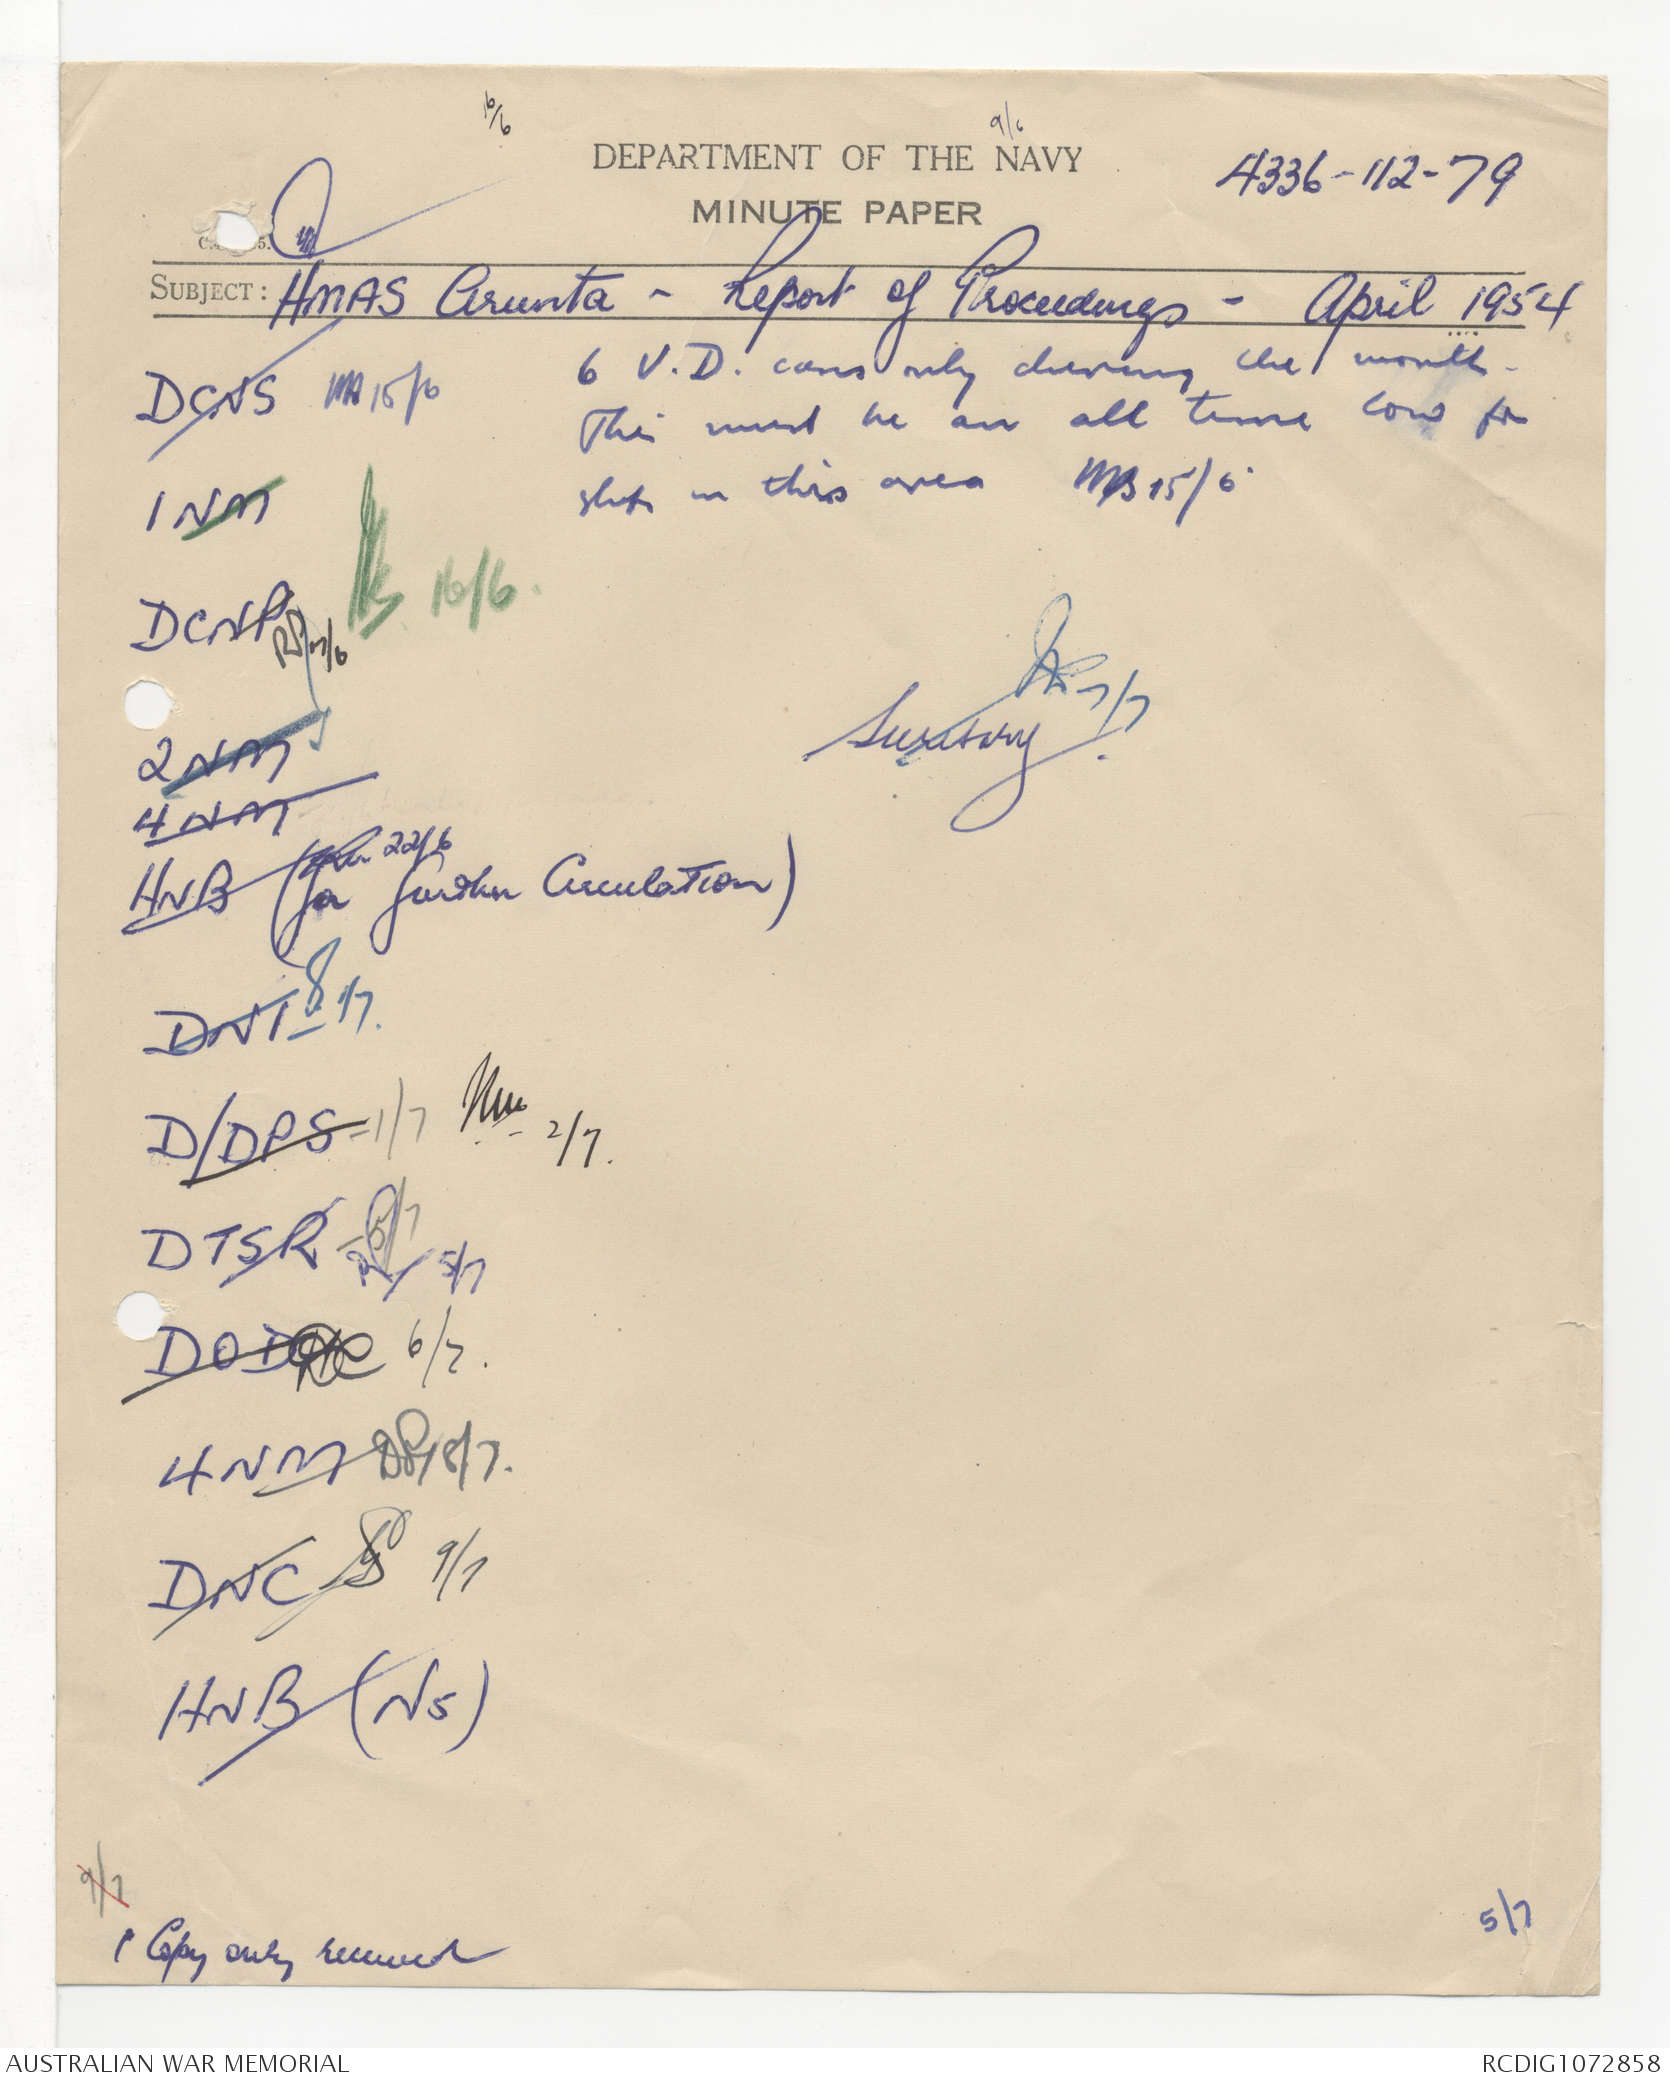 16/6
9/6
DEPARTMENT OF THE NAVY
4336-112-79
MINUTE PAPER
SUBJECT: HMAS Arunta - Report of Proceedings - April 1954
DCNS 15/6
6 V.D. cases only during the month.
This must be an all time low for
ships in this area MB 15/6
1NM
16/6.
DCNP
17/6
7/7
Secretary
2NM
4NM
22/6
HNB (for further Circulation)
DNI 1/7.
D/DPS 1/7 2/7.
DTSR 5/7
5/7
DOD 6/7.
4NM 8/7.
DNC 9/7
HNB (N5)
9/7
5/7
1 Copy only received
AUSTRALIAN WAR MEMORIAL
RCDIG1072858